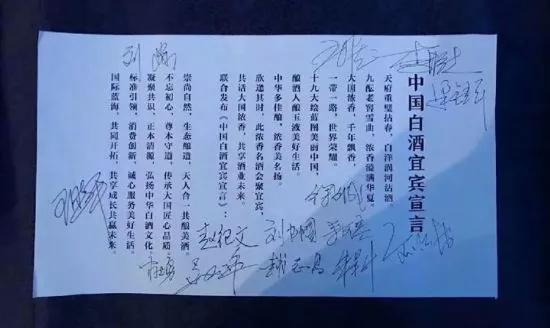 中国白酒宜宾宣言
天府重璧拈春，白洋润河沽酒。
九酝老窖雪曲，浓香溢满华夏。
大国浓香，千年飘香。
一带一路，世界荣耀。
十九大绘蓝图美丽中国，
酿酒人酿玉液美好生活。
中华多佳酿，浓香美名扬。
欣逢其时，此浓香名酒会聚宜宾，
共话大国浓香，共享酒业未来。
联合发布《中国白酒宜宾宣言》：
崇尚自然，生态酿造，天人合一共酿美酒。
不忘初心，尊本守道，传承大国匠心品质。
凝聚共识，正本清源，弘扬中华白酒文化。
标准引领，消费创新，诚心服务美好生活。
国际蓝海，共同开拓，共享成长共赢未来。
赵纪文